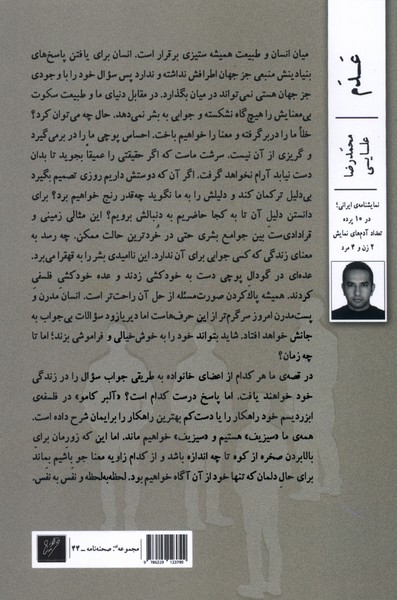 میان انسان و طبیعت همیشه ستیزی برقرار است. انسان برای یافتن پاسخ‌های
بنیادینش منبعی جز جهان اطرافش نداشته و ندارد پس سؤال خود را با وجودی
جز جهان هستی نمی‌تواند در میان بگذارد. در مقابل دنیای ما و طبیعت سکوت
بی‌معنایش را هیچ‌گاه نشکسته و جوابی به بشر نمی‌دهد. حال چه می‌توان کرد؟
خلأ ما را در بر گرفته و معنا را خواهیم باخت. احساس پوچی ما را در برمی‌گیرد
و گریزی از آن نیست. سرشت ماست که اگر حقیقتی را عمیقاً بجوید تا بدان
دست نیابد آرام نخواهد گرفت. اگر آن که دوستش داریم روزی تصمیم بگیرد
بی‌دلیل ترکمان کند و دلیلش را به ما نگوید چقدر رنج خواهیم برد؟ برای
دانستن دلیل آن تا به کجا حاضریم به دنبالش برویم؟ این مثالی زمینی و
قراردادی‌ست بین جوامع بشری حتی در خُردترین حالت ممکن. چه رسد به
معنای زندگی که کسی جوابی برای آن ندارد. این ناامیدی بشر را به قهقرا می‌برد.
عده‌ای در گودالِ پوچی دست به خودکشی زدند و عده خودکشی فلسفی
کردند. همیشه پاک‌کردن صورت‌مسئله از حل آن راحت‌تر است. انسان مدرن و
پست‌مدرن امروز سرگرم‌تر از این حرف‌هاست اما دیر یا زود سؤالات بی‌جواب به
جانش خواهد افتاد. شاید بتواند خود را به خوش‌خیالی و فراموشی بزند؛ اما تا
چه زمان؟
در قصه‌ی ما هر کدام از اعضای خانواده به طریقی جواب سؤال را در زندگی
خود خواهند یافت. اما پاسخ درست کدام است؟ «آلبر کامو» در فلسفه‌ی
ابزردیسم خود راهکار را یا دست‌کم بهترین راهکار را برایمان شرح داده است.
همه‌ی ما «سیزیف» هستیم و «سیزیف» خواهیم ماند. اما این که زورمان برای
بالابردن صخره از کوه تا چه اندازه باشد و از کدام زاویه معنا جو باشیم بماند
برای حالِ دلمان که تنها خود از آن آگاه خواهیم بود. لحظه‌به‌لحظه و نفس به نفس.
عَدَم
محمدرضا
علایی
نمایشنامه‌ی ایرانی؛
در ۱۰ پرده
تعداد آدم‌های نمایش
۲ زن و ۴ مرد
مجموعه: صحنه‌نامه ـ ۴۴